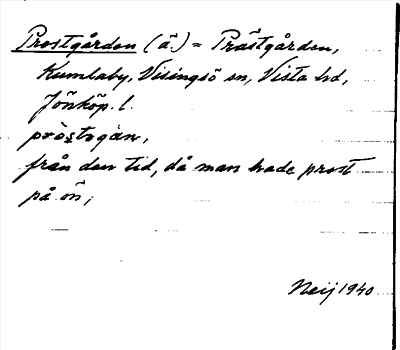 Prostgården (ä.) = Prästgården,
Kumlaby, Visingsö sn, Vista hd,
Jönköp. l.
pròstogàn,
från den tid, då man hade prost
på ön;
Neij 1940